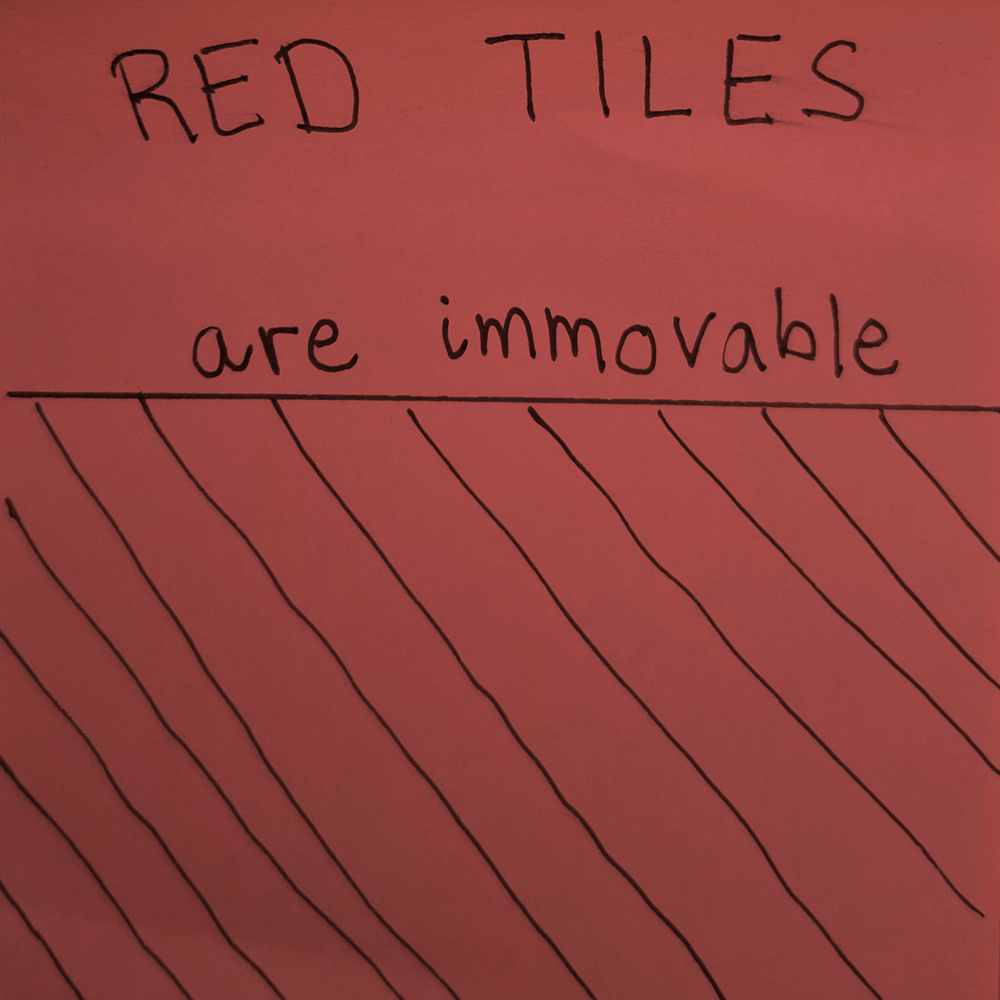 RED TILES
are immovable